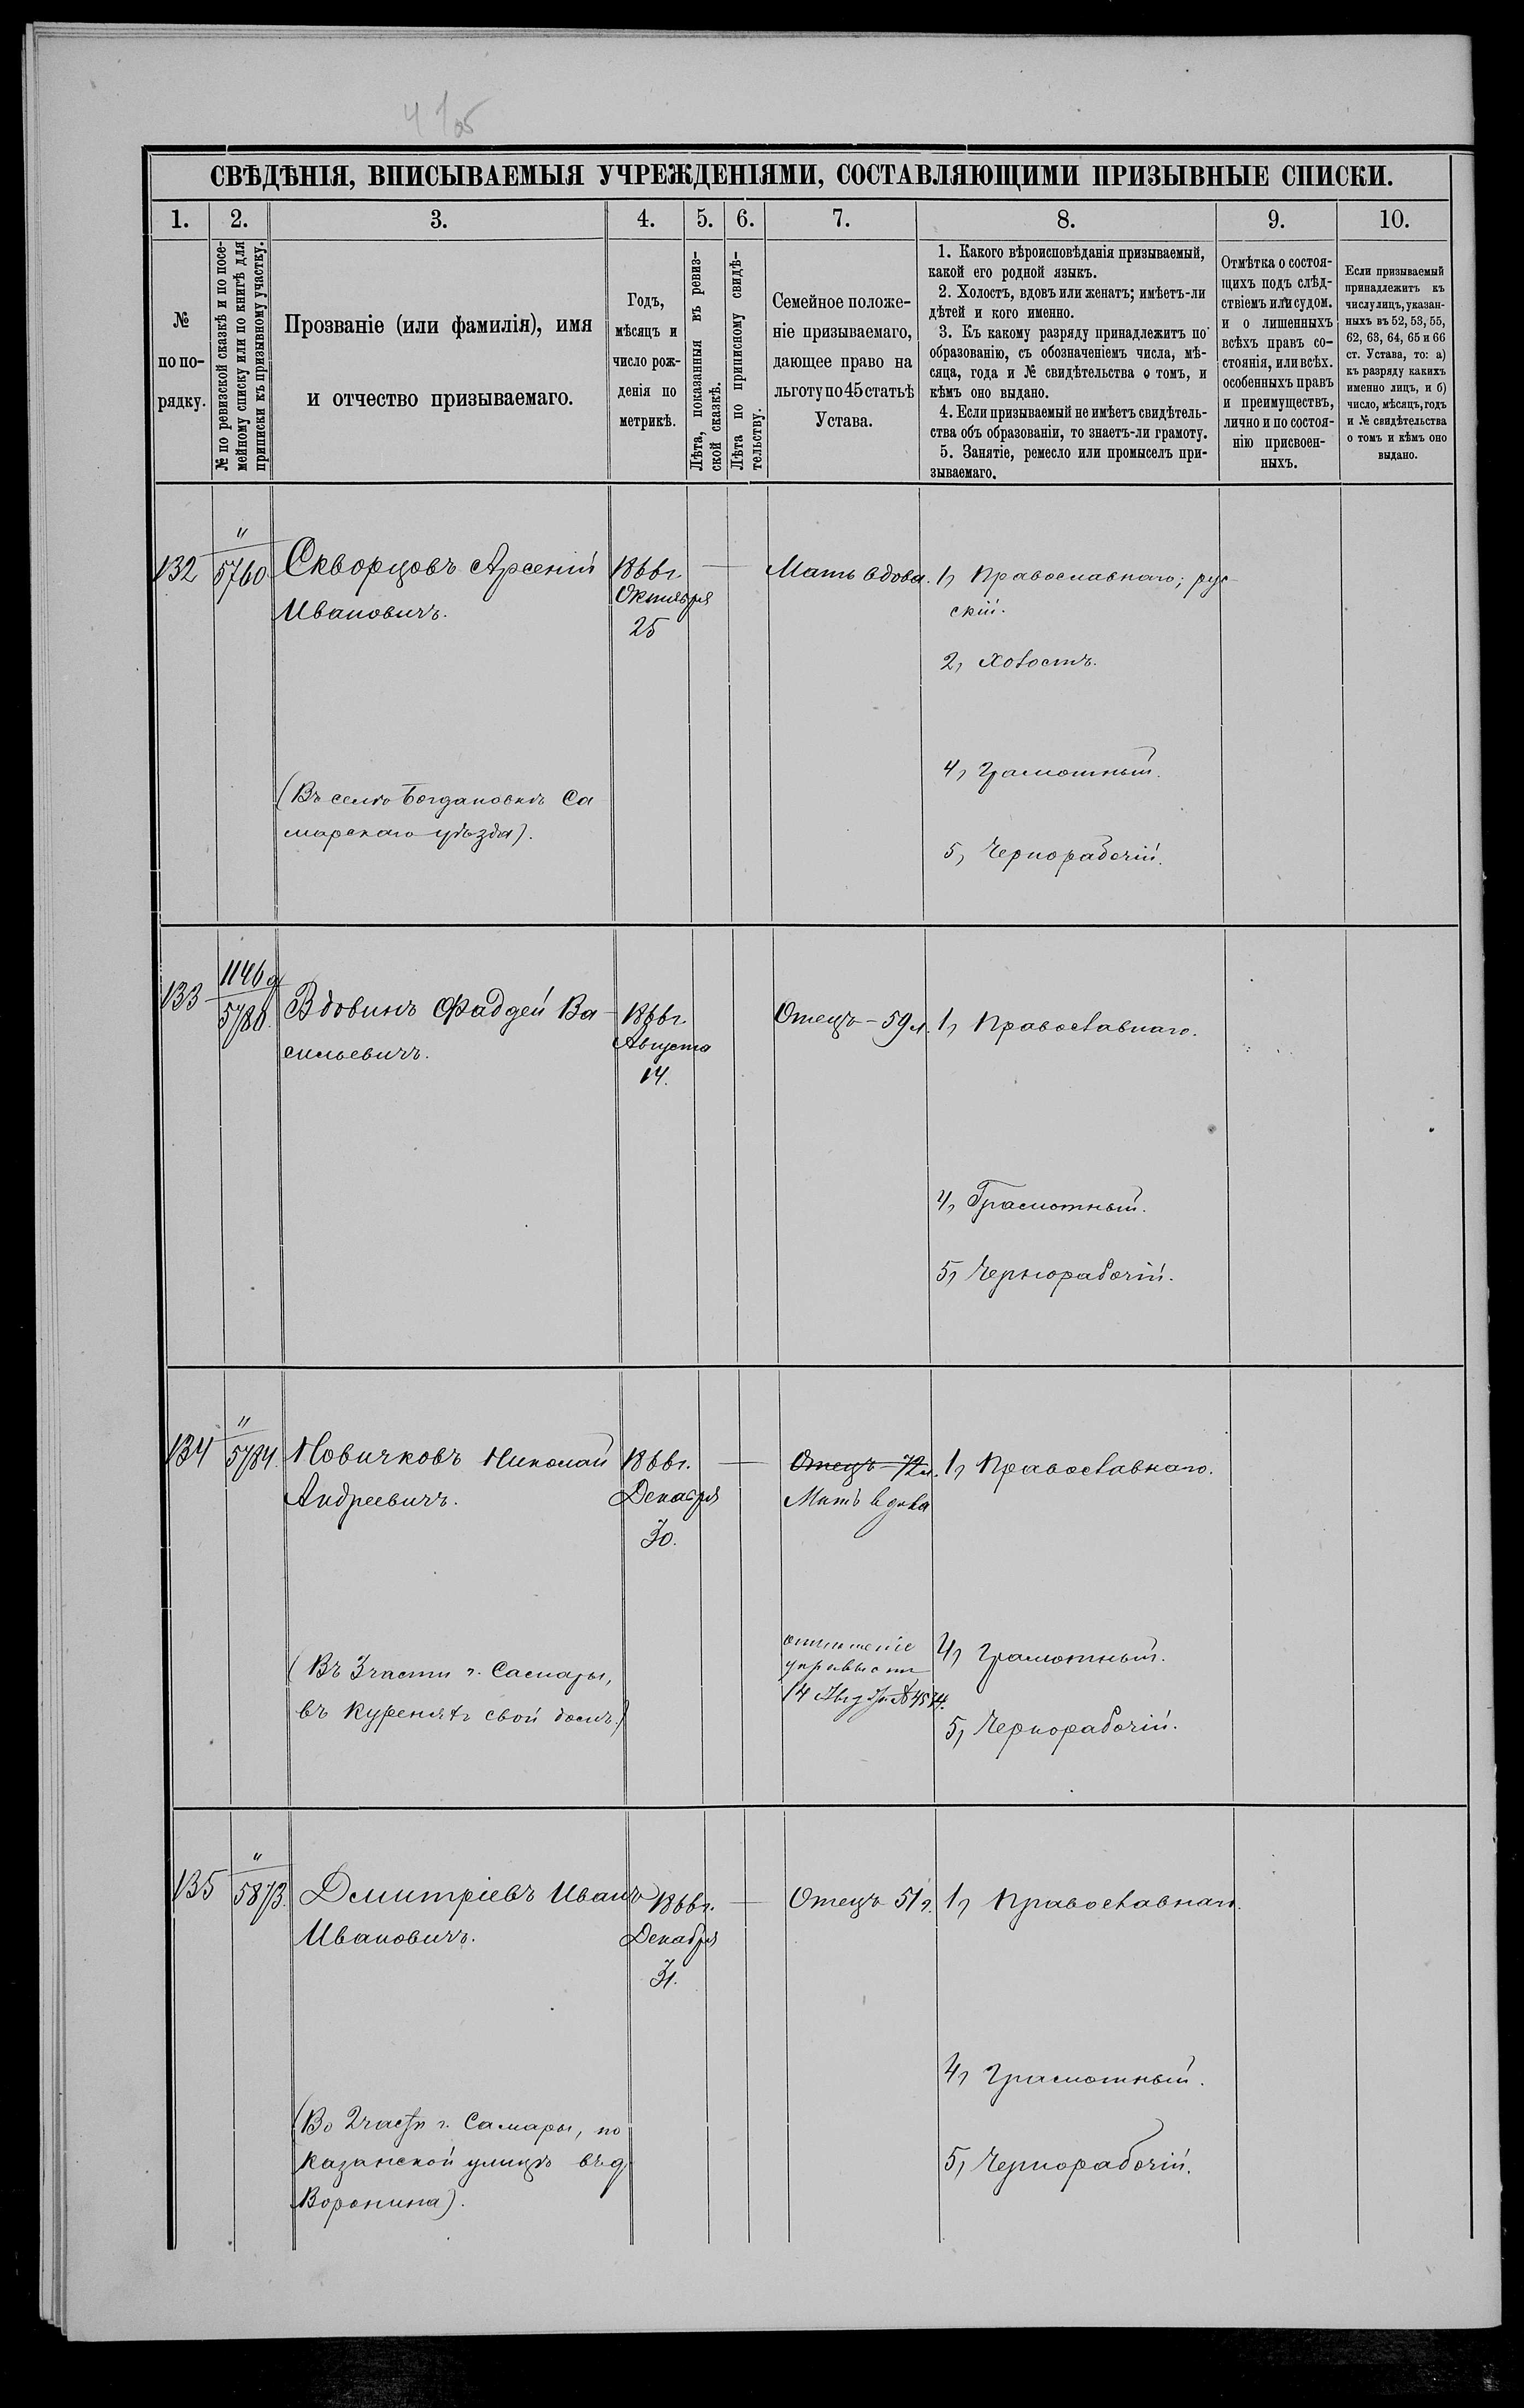 СВѢДѢНІЯ, ВПИСЫВАЕМЫЯ УЧРЕЖДЕНІЯМИ, СОСТАВЛЯЮЩИМИ ПРИЗЫВНЫЕ СПИСКИ.
1. 2. 3. 4. 5. 6. 7. 8. 9. 10.
№
по по-
рядку.
№ по ревизской сказкѣ и по посе-
мейному списку или по книгѣ для
приписки къ призывному участку.
Прозваніе (или фамилія), имя
и отчество призываемаго.
Годъ,
мѣсяцъ и
число рож-
денія по
метрикѣ.
Лѣта, показанныя въ ревиз-
ской сказкѣ.
Лѣта по приписному свидѣ-
тельству.
Семейное положе-
ніе призываемаго,
дающее право на
льготу по 45 статьѣ
Устава.
1. Какого вѣроисповѣданія призываемый,
какой его родной языкъ.
2. Холостъ, вдовъ или женатъ; имѣетъ-ли
дѣтей и кого именно.
3. Къ какому разряду принадлежитъ по
образованію, съ обозначеніемъ числа, мѣ-
сяца, года и № свидѣтельства о томъ, и
кѣмъ оно выдано.
4. Если призываемый не имѣетъ свидѣтель-
ства объ образованіи, то знаетъ-ли грамоту.
5. Занятіе, ремесло или промыселъ при-
зываемаго.
Отмѣтка о состоя-
щихъ подъ слѣд-
ствіемъ или судом.
и о лишенныхъ
всѣхъ правъ со-
стоянія, или всѣх.
особенныхъ правъ
и преимуществъ,
лично и по состоя-
нію присвоен-
ныхъ.
Если призываемый
принадлежитъ къ
числу лицъ, указан-
ныхъ въ 52, 53, 55,
62, 63, 64, 65 и 66
ст. Устава, то: а)
къ разряду какихъ
именно лицъ, и б)
число, мѣсяцъ, годъ
и № свидѣтельства
о томъ и кѣмъ оно
выдано.
132
"
5760
Скворцовъ Арсеній
Ивановичъ.
(Въ селѣ Богдановкѣ Са
марскаго уѣзда).
1866г.
Октября
25
Мать вдова.
1, Православнаго; рус-
скій.
2, Холостъ.
4, Грамотный.
5, Чернорабочій.
133
1146
5780.
Вдовинъ Фаддей Ва-
сильевичъ.
1866г.
Августа
14.
Отецъ - 59 л.
1, Православнаго.
4, Грамотный.
5, Чернорабочій.
134
"
5784.
Новичковъ Николай
Андреевичъ.
(Въ 3 части г. Самары,
въ Куреняхъ свой домъ.)
1866г.
Декабря
30.
Отецъ 72 л.
Мать вдова
1, Православнаго.
4, Грамотный.
5, Чернорабочій.
135
"
5873.
Дмитріевъ Иванъ
Ивановичъ.
(Во 2 части г. Самары, по
Казанской улицѣ въ д.
Воронина).
1866г.
Декабря
31.
Отецъ 51 г.
1, Православнаго.
4, Грамотный.
5, Чернорабочій.